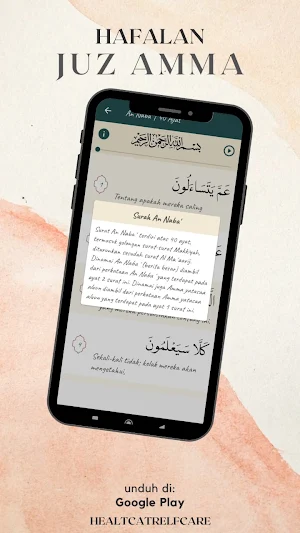 HAFALAN
JUZ AMMA
An Naba' | 40 Ayat
بِسْمِ اللَّهِ الرَّحْمَٰنِ الرَّحِيمِ
عَمَّ يَتَسَاءَلُونَ
Tentang apakah mereka saling
Surah An Naba'
Surat An Naba´ terdiri atas 40 ayat,
termasuk golongan surat-surat Makkiyah,
diturunkan sesudah surat Al Ma´aarij.
Dinamai An Naba´ (berita besar) diambil
dari perkataan An Naba´ yang terdapat pada
ayat 2 surat ini. Dinamai juga Amma yatasaa
aluun diambil dari perkataan Amma yatasaa
aluun yang terdapat pada ayat 1 surat ini.
كَلَّا سَيَعْلَمُونَ
Sekali-kali tidak; kelak mereka akan
mengetahui,
unduh di:
Google Play
HEALTCATRELFCARE